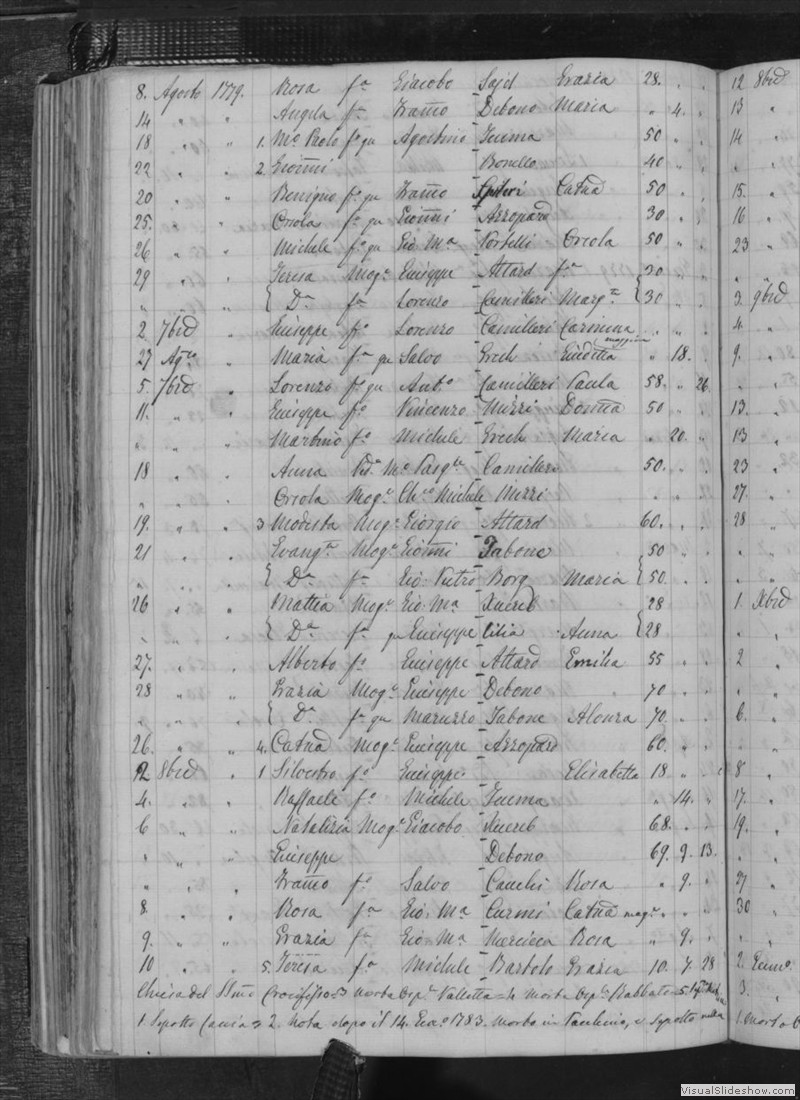 8. Agosto 1779. Rosa fa Giacobo Sajd Grazia 28. " "
14 " " Angela fa Franco Debono Maria " 4. "
18 " " 1. Mo Paolo fo qu Agostino Zuema 50 " "
22 " " 2. Gionni Bonello 40 " "
20 " " Benigno fo qu Franco Spiteri Catna 50 " "
25. " " Orsola fa qu Gionni Azzopard 30 " "
26 " " Michele fo qu Gio. Ma Portelli Orsola 50 " "
29 " " Teresa Moge Giuseppe Attard fa { 30 " "
" " " { Da fa Lorenzo Camilleri Margta { 30 " "
2 7bre " Giuseppe fo Lorenzo Camilleri Carmina " " "
27 Agto " Maria fa qu Salvo Grech Giuditta " 18. "
5. 7bre " Lorenzo fo qu Anto Camilleri Paula 58. " 26
11. " " Giuseppe fo Vincenzo Mizzi 50 " "
" " " Martino fo Michele Grech Maria " 20. "
18 " " Anna Vda Mo Pasqle Camilleri 50. " "
" " " Orsola Moge Michele Mizzi " " "
19. " " 3 Modesta Moge Giorgio Attard 60. " "
21 " " Evangta Moge Gionni Tabone 50 " "
" " " { Da fa Gio. Pietro Borg Maria { 50. " "
26 " " Mattia Moge Gio. Ma Xuereb 28
" " " { Da fa qu Giuseppe Cilia Anna { 28
27. " " Alberto fo Giuseppe Attard Emilia 55 " "
28 " " Grazia Moge Giuseppe Debono 70 " "
" " " { Da fa qu Maruzzo Tabone Alonza 70. " "
26. " " 4. Catna Moge Giuseppe Azzopard 60. " "
2 8bre " 1 Silvestro fo Giuseppe Elisabetta 18 " "
4. " " Raffaele fo Michele Zuema " 14. "
6 " " Natalizia Moge Giacobo Xuereb 68. " "
" " " Giuseppe Debono 69. 9. 13.
" " " Franco fo Salvo Cauchi Rosa " 9. "
8 " " Rosa fa Gio. Ma Curmi Catna " " "
9. " " Grazia fa Gio Ma Mercieca Rosa " 9. "
10 " " 5. Teresa fa Michele Bartolo Grazia 10. 7. 28
Chiesa del SSmo Crocifisso = 3 morta Valletta = 4 morta Rabbato = 5.
1. Sepolto = 2. Nota dopo il 14. 1783. morto in e Sepolto nella
12 8bre
13 "
14 "
15. "
16 "
23 "
2 9bre
4. "
9. "
13. "
13 "
23 "
27. "
28 "
1. Xbre
2 "
6. "
8 "
17. "
19. "
27 "
30 "
3. "
VisualSlideshow.com